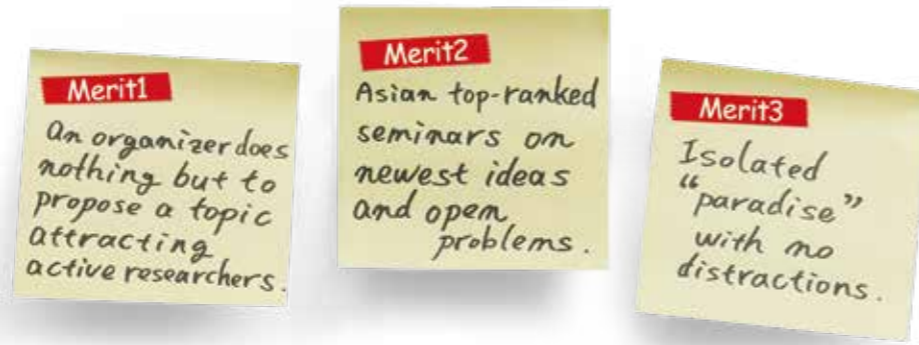 Merit1
An organizer does
nothing but to
propose a topic
attracting
active researchers.
Merit2
Asian top-ranked
seminars on
newest ideas
and open
problems.
Merit3
Isolated
"paradise"
with no
distractions.